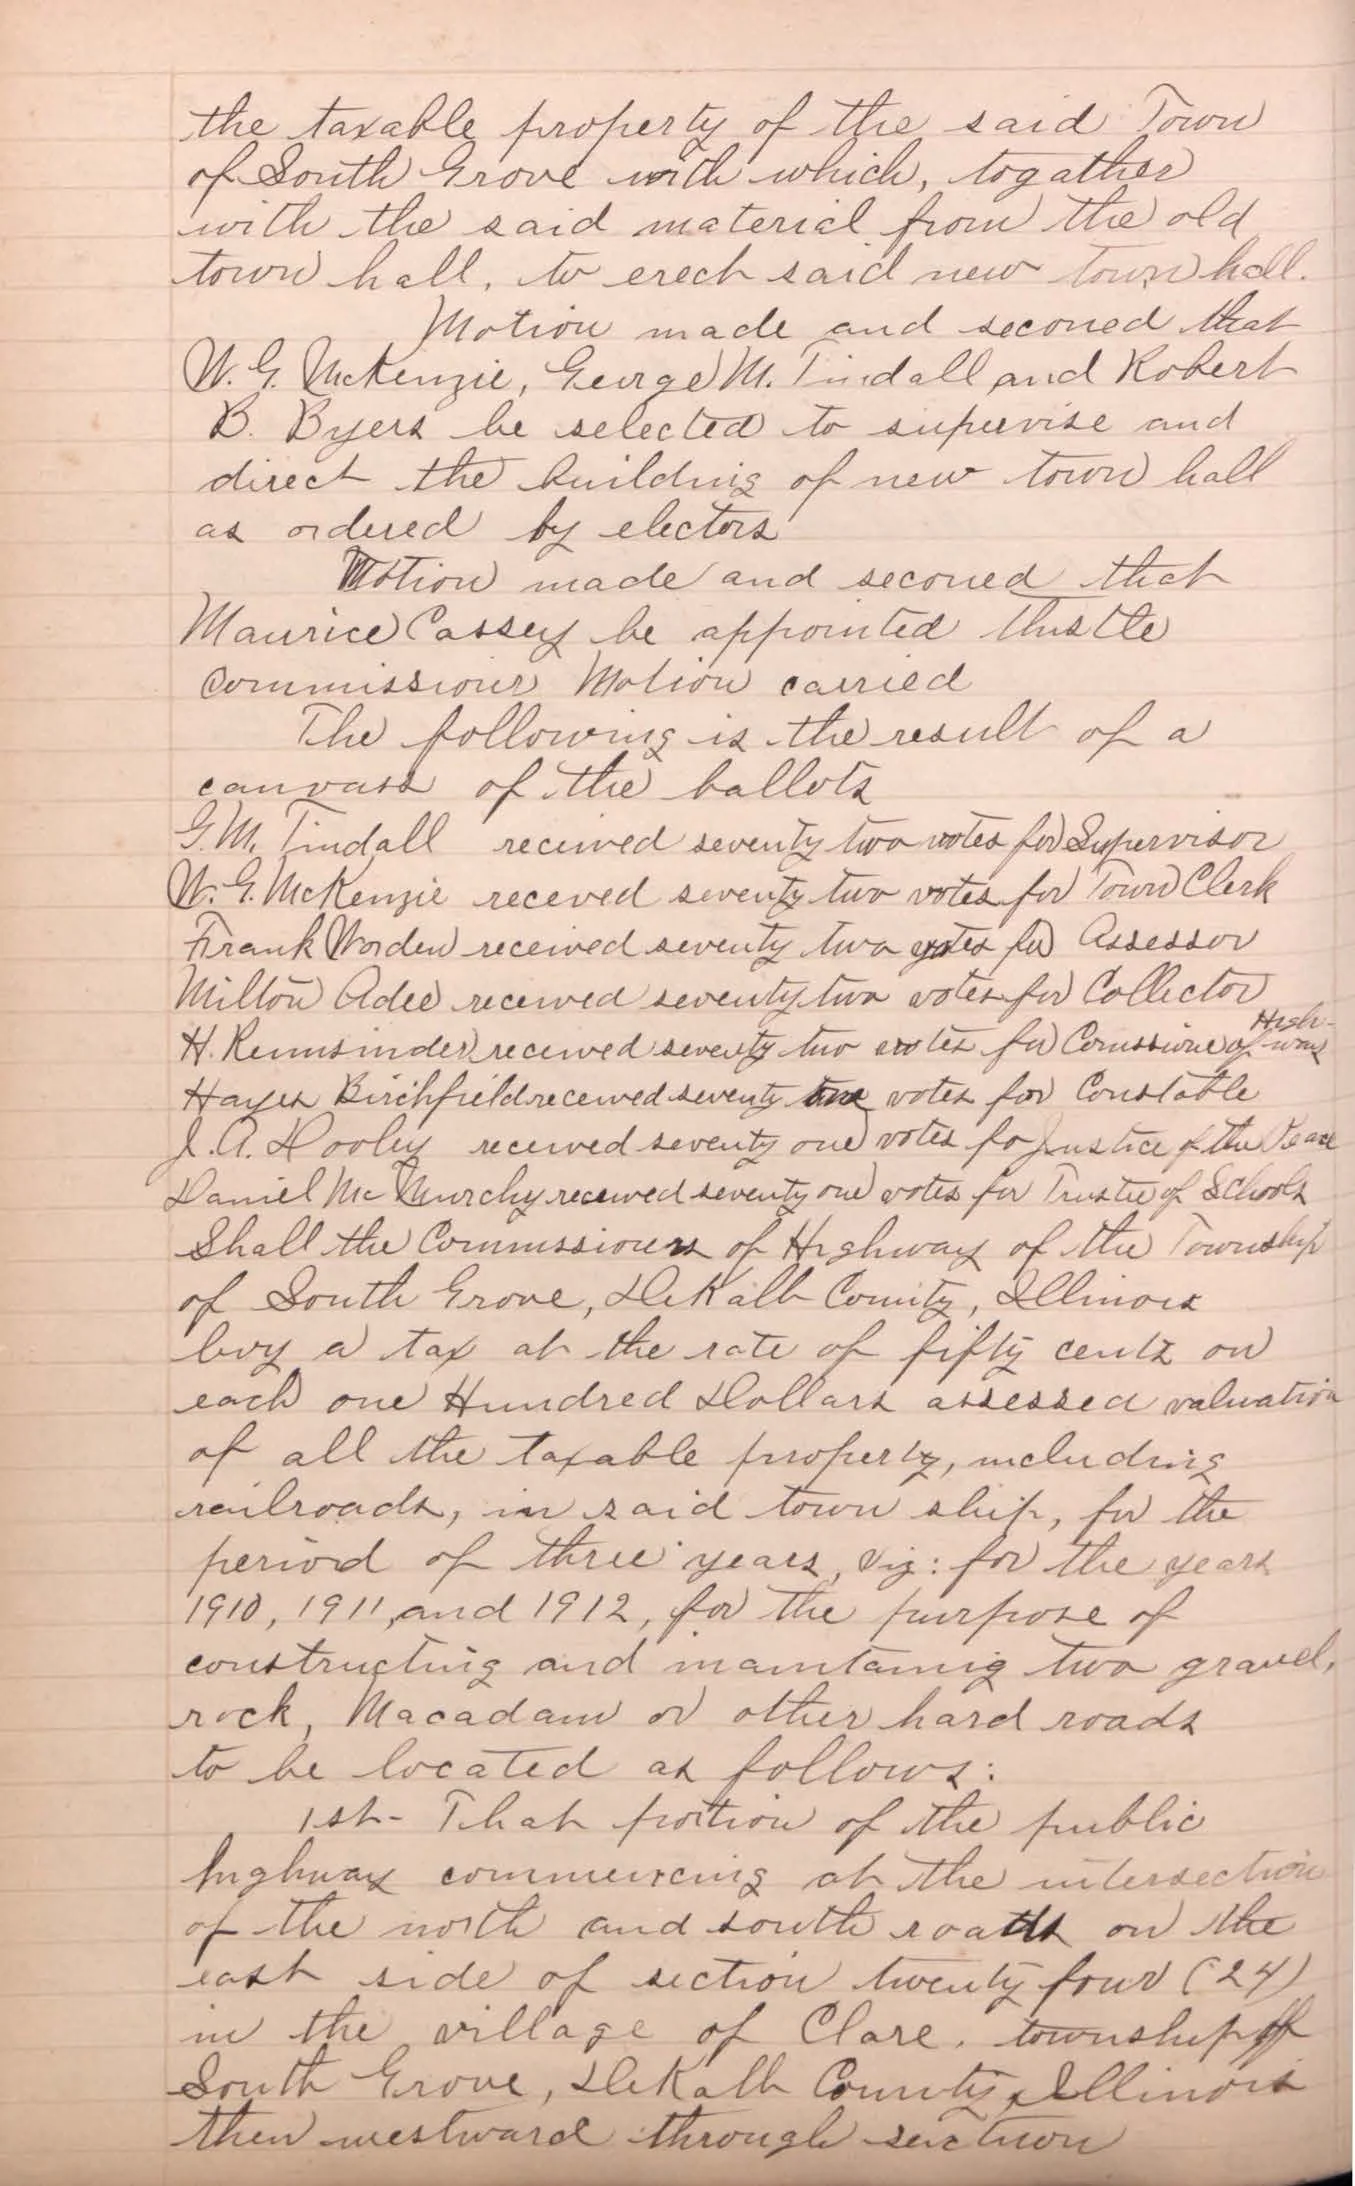 the taxable property of the said Town
of South Grove with which, togather
with the said material from the old
town hall, to erech said new town hall.
Motion made and seconed that
W. G. McKenzie, George M. Tindall and Robert
B. Byers be selected to supervise and
direct the building of new town hall
as ordered by electors
Motion made and seconed that
Maurice Cassey be appointed thistle
commissioner Motion carried
The following is the result of a
canvass of the ballots
G. M. Tindall received seventy two votes for Supervisor
W. G. McKenzie receved seventy two votes for Town Clerk
Frank Worden received seventy two votes for Assessor
Milton Adee received seventy two votes for Collector
H. received seventy two votes for Comissione of High-way
Hayes Birchfield received seventy votes for Constable
J. A. Dooley received seventy one votes fo Justice of the Peace
Daniel McMurchy received seventy one votes for Trustee of Schools
Shall the Commissioners of Highway of the Township
of South Grove, DeKalb County, Illinois
levy a tax at the rate of fifty cents on
each one Hundred Dollars assessed valuation
of all the taxable property, including
railroads, in said town ship, for the
period of three years, viz: for the years
1910, 1911, and 1912, for the purpose of
constructing and maintaining two gravel,
rock, Macadam or other hard roads
to be located as follows:
1st- That portion of the public
highway commencing at the intersection
of the north and south roads on the
east side of section twenty four (24)
in the village of Clare, township of
South Grove, DeKalb County, Illinois
then westward through section